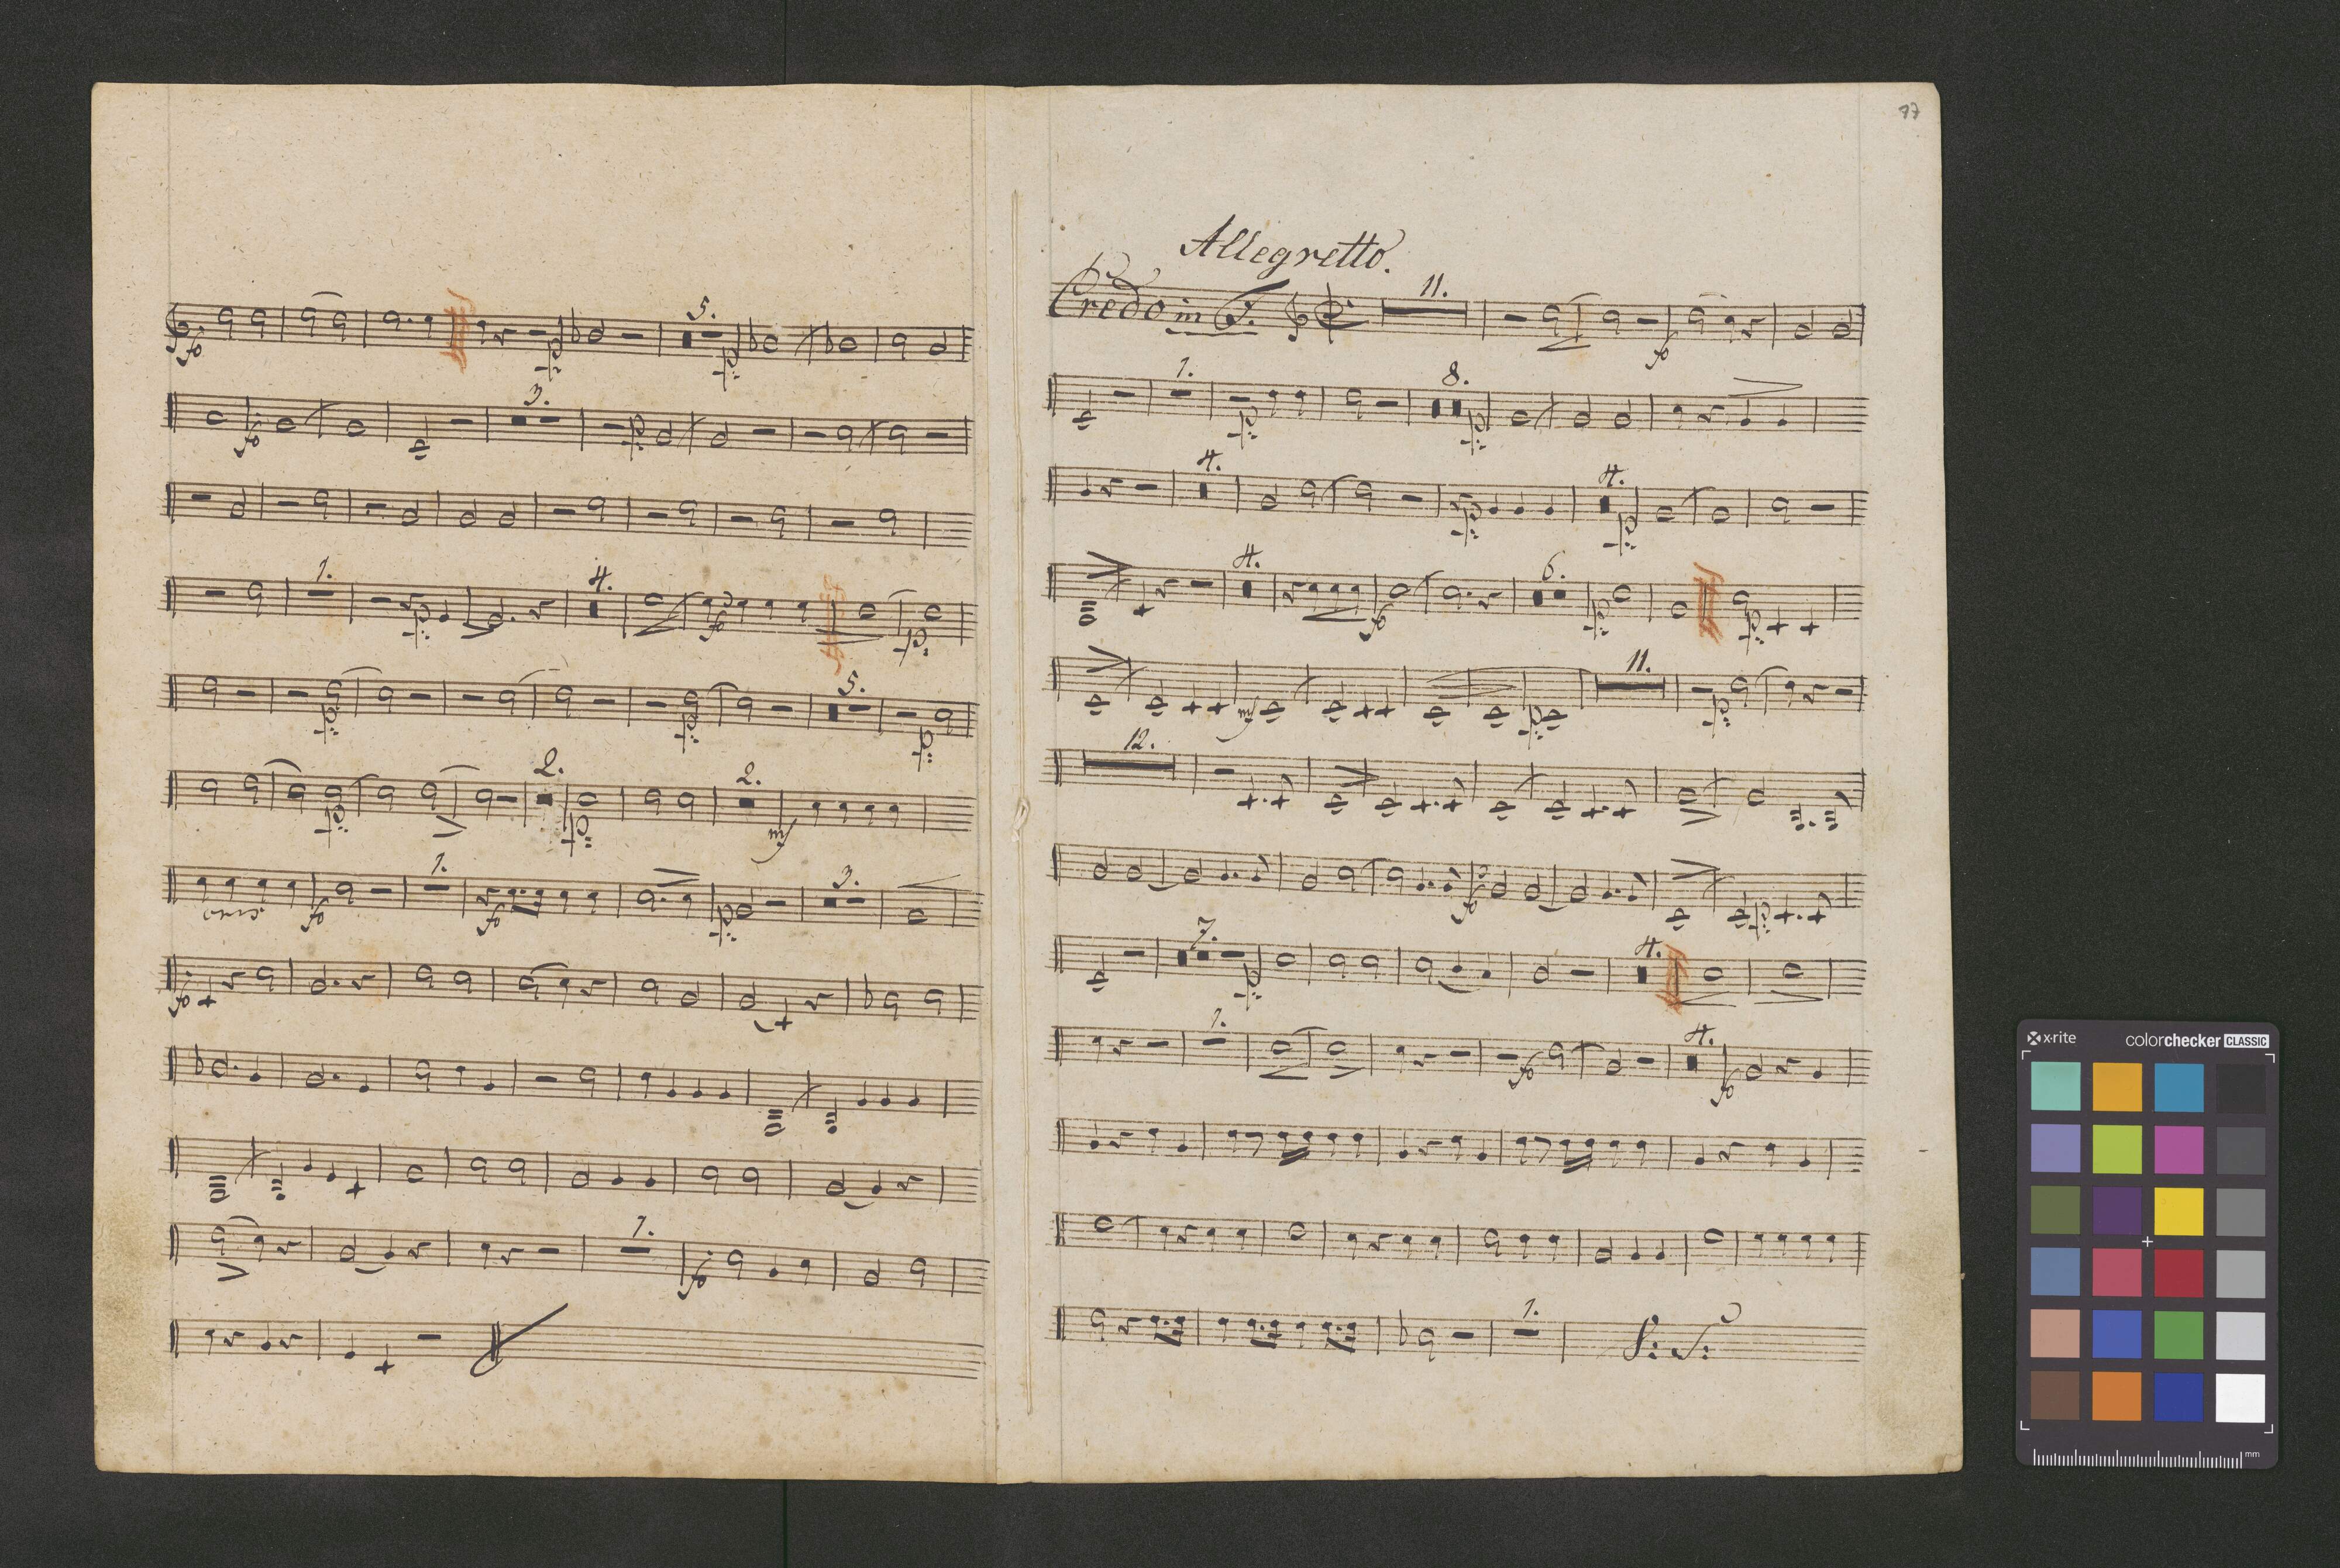 5.
fo
p:
p:
3.
fo
p:
1.
4.
p:
fo
p:
5.
p:
p:
p:
2.
2.
p:
p:
mf
1.
3.
cres
fo
fo
p:
fo
1.
fo
77
Allegretto.
11.
Credo in F.
fo
1.
8.
p:
p:
4.
4.
p:
p:
4.
6.
fo
p:
p:
11.
mf
p:
p:
12.
fo
p:
7.
4.
p:
1.
4.
fo
fo
1.
x-rite
colorchecker CLASSIC
mm